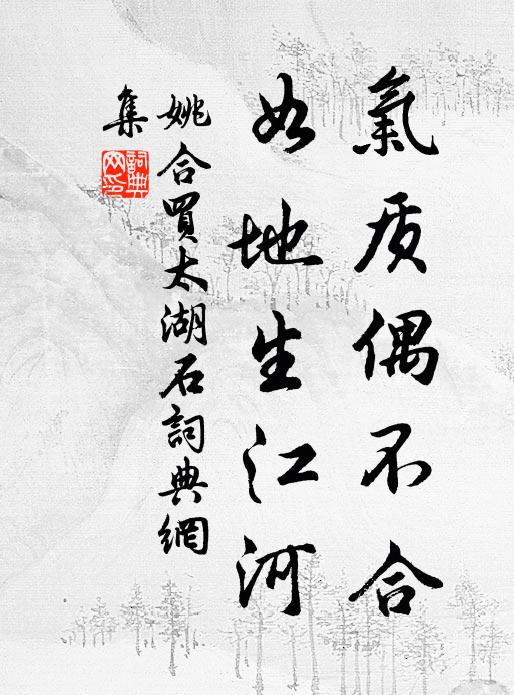 氣质偶不合
如地生江河
姚合買太湖石詞典網
集
詞典網印